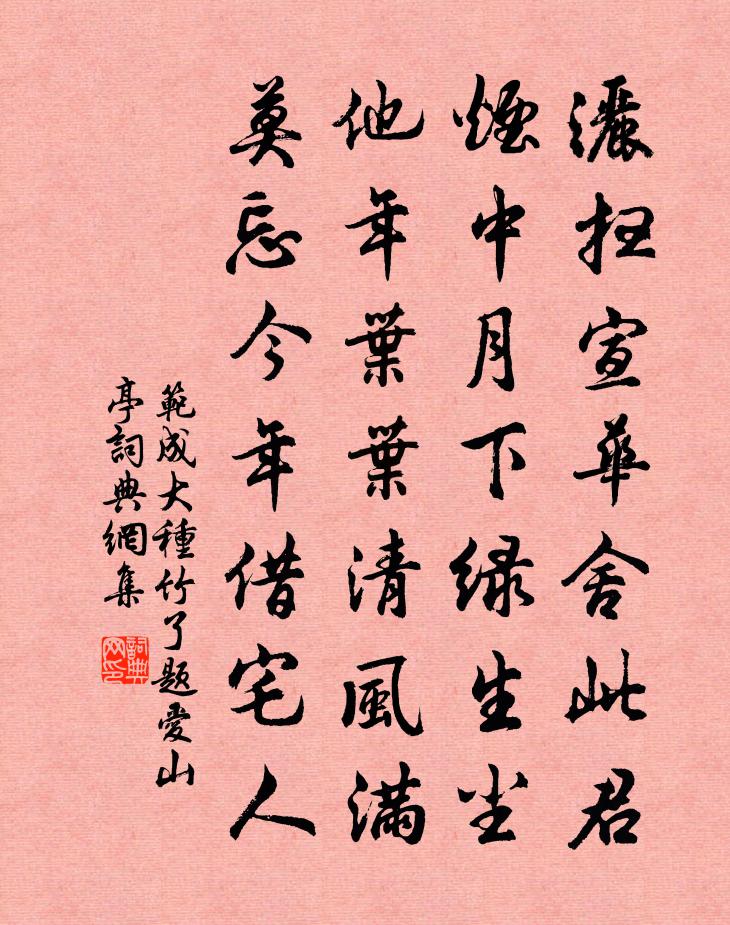 灑掃宣華舍此君
煙中月下綠生塵
他年葉葉清風滿
莫忘今年借宅人
範成大種竹了題愛山
亭詞典網集
詞典
网印